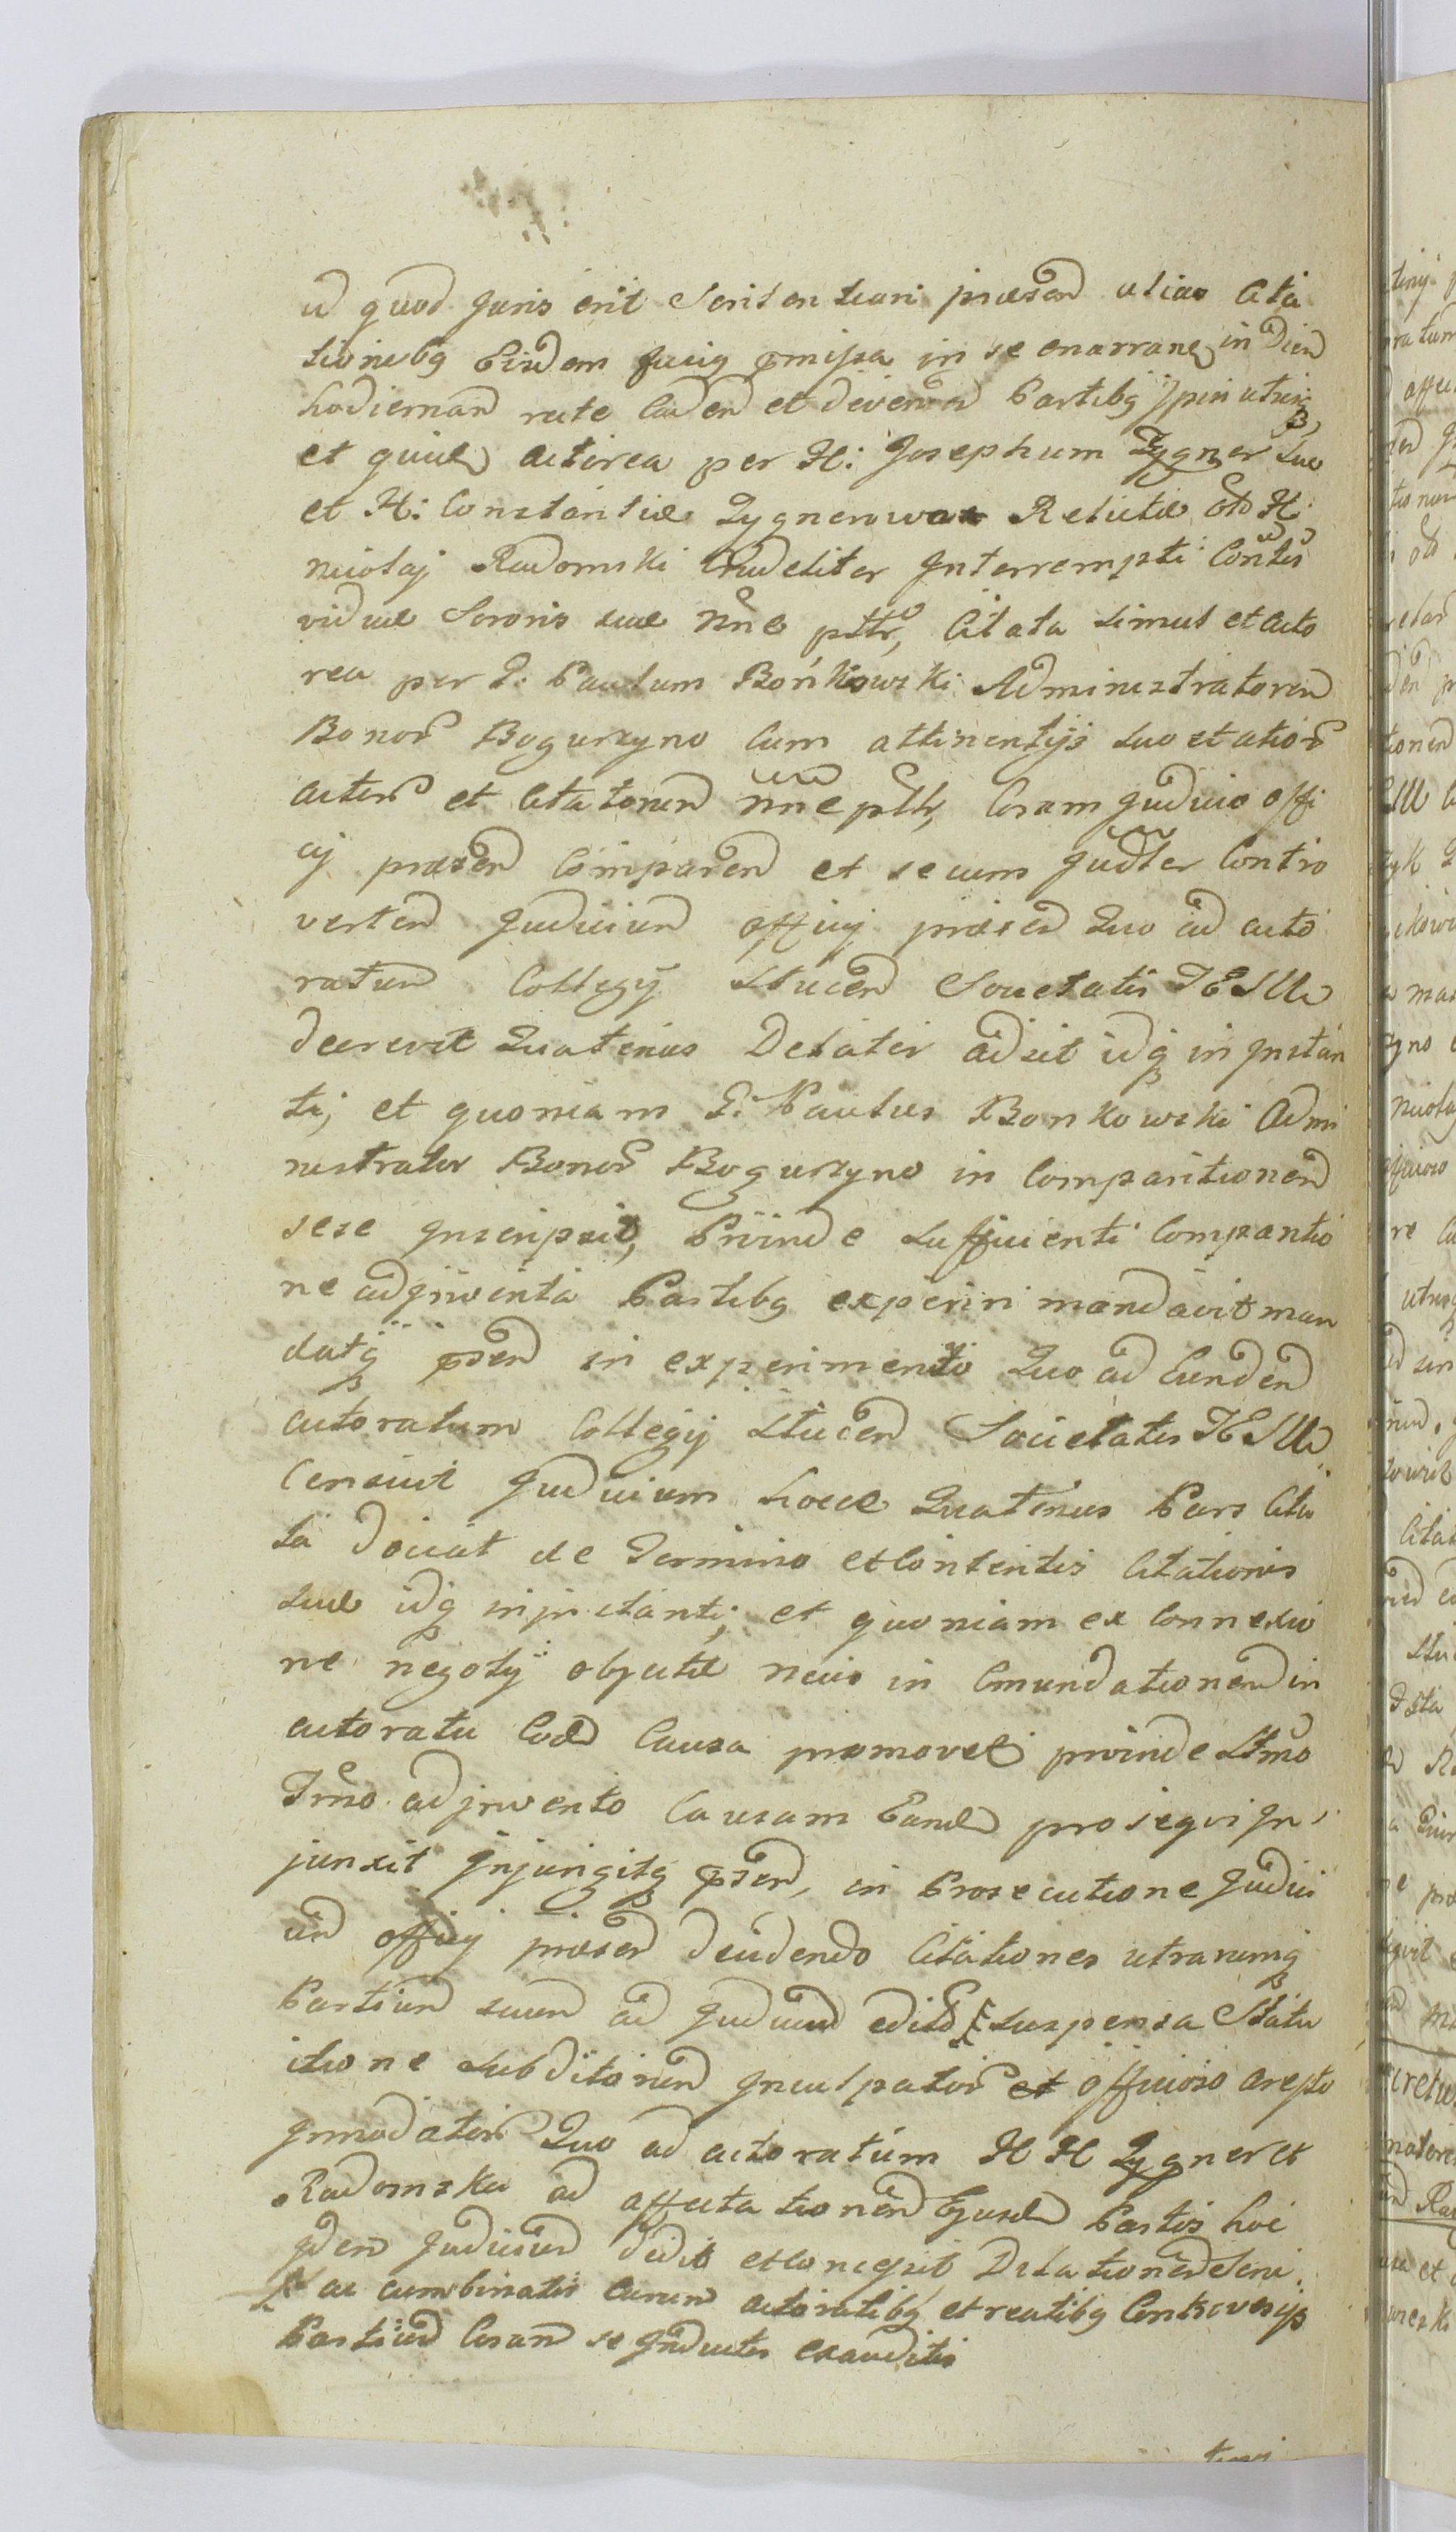 id quod Juris erit Sententiari præsen alias Cita
tionibq Eisdem fusiq pmissa in se enarran in Diem
hodiernam rite Caden et deveniend Partibq Ipsis utrisq
et quidem actorea per H: Josephum Zygner Suo
et H: Constantiæ Zygnerowa Relictæ olo H:
Nicolaj Radomski Crudeliter Interrempti Contis
viduæ Sororis suæ nne ptte, Citata simul et acto
rea per G. Paulum Bońkowski Administratorem
Bonor Boguszyno Cum attinentijs suo et alior
actor et Citatorum nne ptte, Coram Judicio offi
cij præsen Comparen et secum Judter Contro
verten Judicium officij præsen Quo ad acto
ratum Collegij Stucen Societatis JESU
decrevit Quatenus Delator adsit idq in Instan
ti; et quoniam G. Paulus Bonkowski Admi
nistrator Bonor Boguszyno in Comparitionem
sese Inscripsit, Proinde Sufficienti Comparitio
ne adjnventa Partibq experiri mandavit man
datq psen in experimento Quo ad Eundem
actoratum Collegij Stucen Societatis JESU
Censuit Judicium hocce Quatenus Pars Cita
ta doceat de Termino et Contentis Citationis
suæ idq in instanti; et quoniam ex Connexio
ne negotij objectæ necis in Emundationem in
actoratu Eod Causa promovet proinde Stmo
Tmo adjnvento Causam Eand prosequi In
junxit Injungitq psen, in Prosecutione Judici
um officij præsen decidendo Citationes utrarumq
Partium suum ad Judicium edit Suspensa Statu
itione Subditorum Inculpator et officioso aresto
Inmodator Quo ad actoratum H H Zygner et
Radomska ad affectationem Ejusd Partis hoc
Idem Judicium dedit et Concessit Dilationem
ac cumbinatis earum actoratibq et reatibq Controversijs
Partium Coram se Inductis exauditis